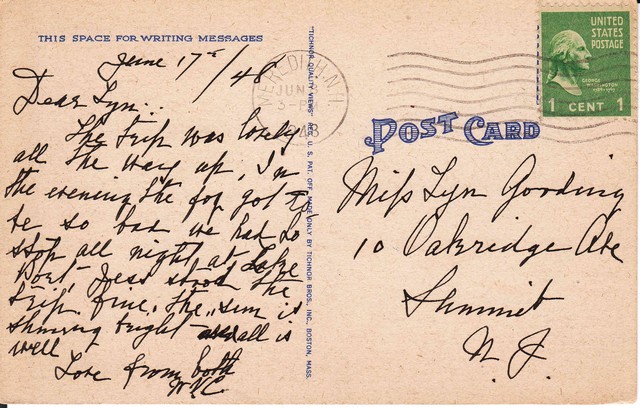 THIS SPACE FOR WRITING MESSAGES
June 17th/48
Dear Lyn..
The trip was lovely
all the way up, In
the evening the fog got to
be so bad we had to
stop all night at Lake
Port, Jess stood the
trip fine. The sun is
shining bright all is
well
Love from both
"TICHNOR QUALITY VIEWS" REG. U. S. PAT. OFF. MADE ONLY BY TICHNOR BROS., INC., BOSTON, MASS.
MEREDITH N.H.
JUN
3-P
48
UNITED
STATES
POSTAGE
GEORGE
WASHINGTON
1 CENT 1
POST CARD
Miss Lyn Gooding
10 Oakridge Ave
Summit
N. J.